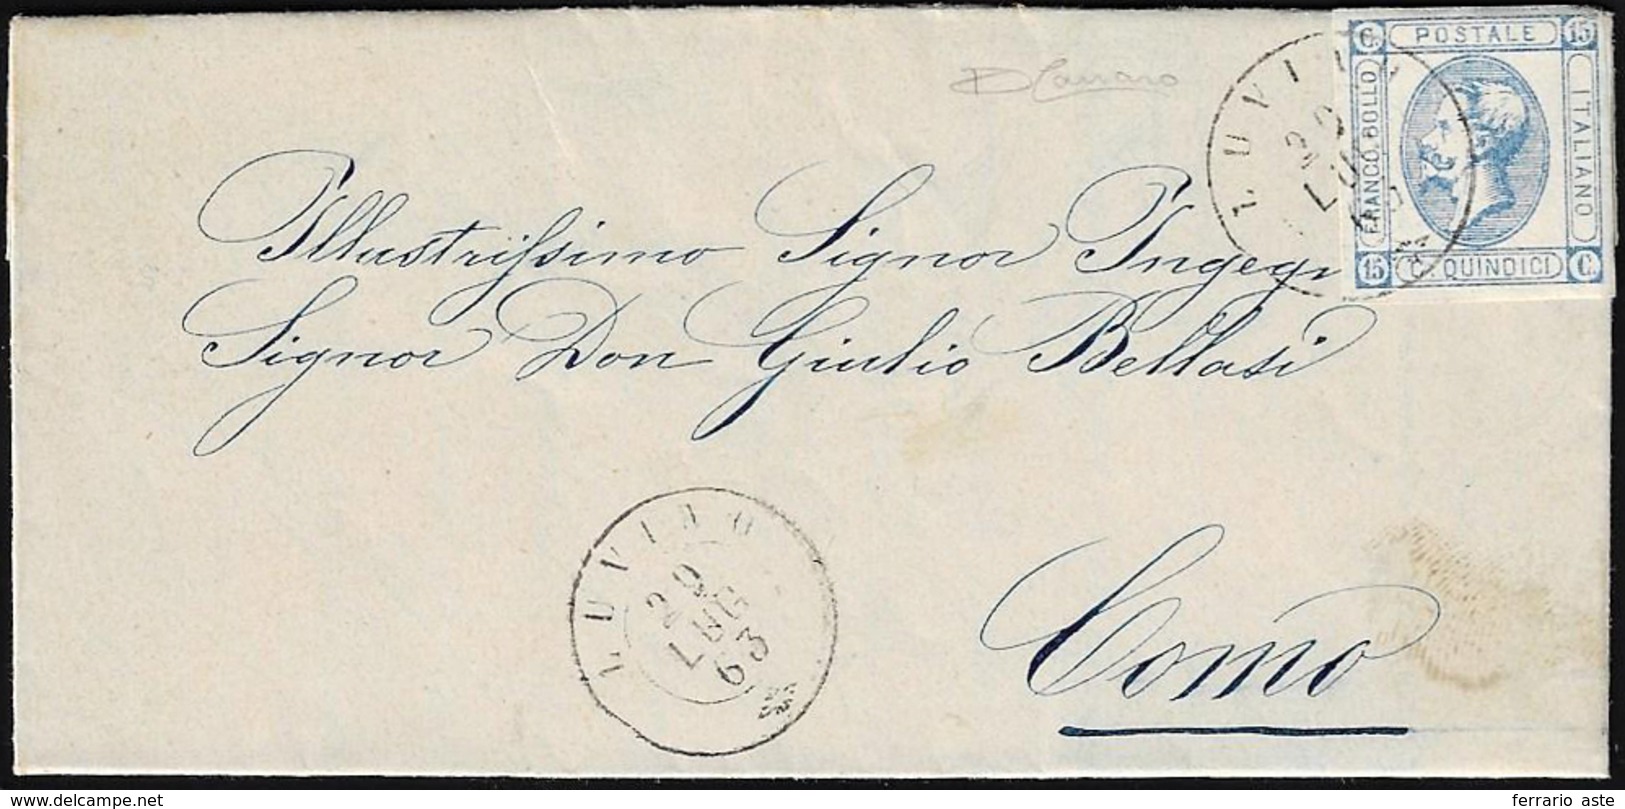 C. POSTALE 15
FRANCO BOLLO
ITALIANO
15 C. QUINDICI C.
29
LUG
63
Illustrissimo Signor Ingegr
Signor Don Giulio Bellasi
LUVINO
29
LUG
63
Como
ferrario aste